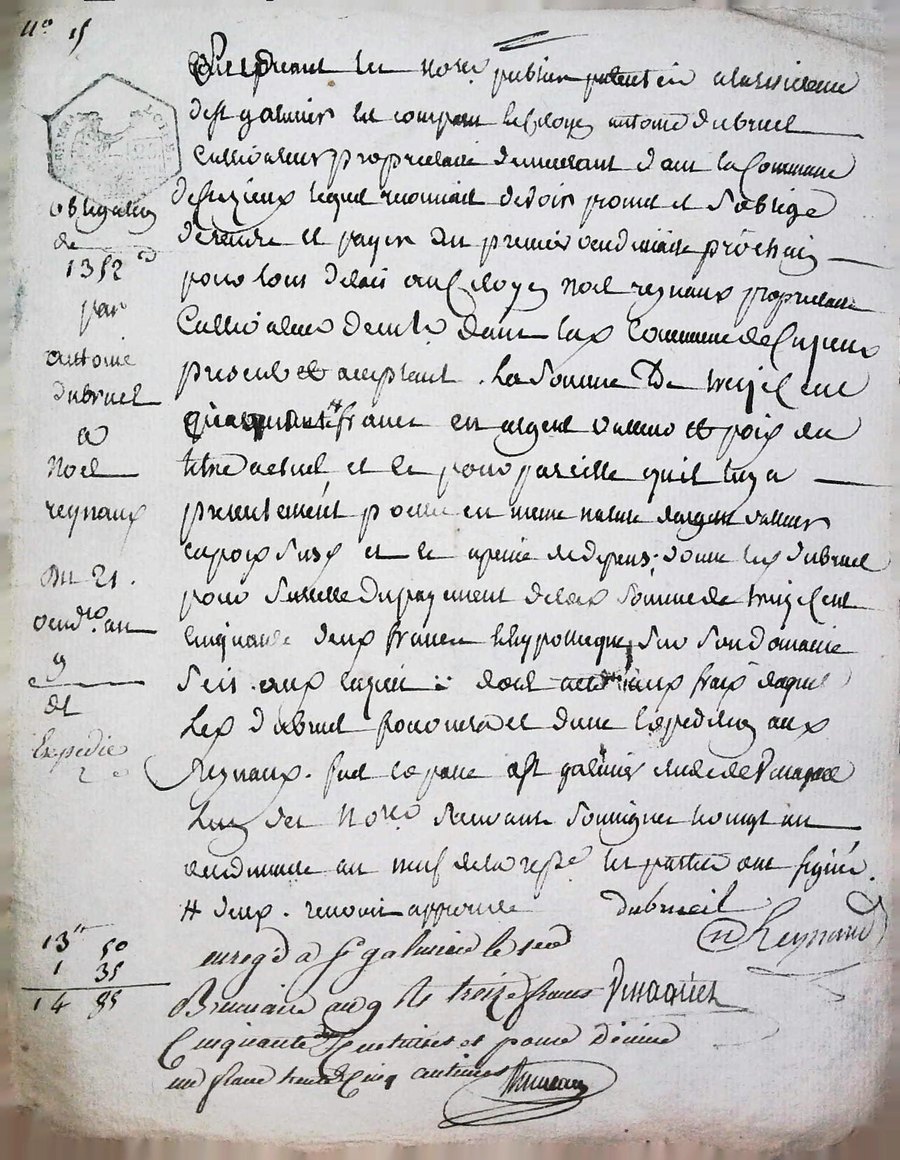 No 15
Pardevant les Nores publics patentés a la residence
de st galmier est comparu le Citoyen antoine dubruel
Cultivateur proprietaire demeurant dans la Commune
de Cuzieux lequel reconnait devoir promet et s'oblige
de rendre et payer du premier vendemiaire prochain
pour tous delais au Citoyen Noel reynaux proprietaire
Cultivateur demt dans lad Commune de Cuzieux
present et acceptant. La Somme De treize Cent
Cinquante # francs en argent valeur et poix du
titre actuel et ce pour pareille qu'il luy a
presentement pretté en meme nature d'argent valeur
et poix susd et a peine de depens; donne led dubruel
pour surette du payement de lad Somme de treize Cent
Cinquante deux francs l'hypotheque sur son domaine
Seis aux dont acte aux frais duquel
Led dubruel fournira et d'une expedition aux
Reynaux. fait et passé a st galmier etude de Pinaquet
L'un des Nores recevant Soussigné le vingt un
vendemiaire an neuf de la repe les parties ont signés.
# deux. renvoi approuvé dubrueil
N Reynaud
Pinaquet
obligation
de
1352
par
antoine
dubruel
a
Noel
reynaux
Du 21.
vendre. an
9
Expedié
13 50
1 35
14 85
enregé a St galmier le
Brumaire an 9 Rs treize francs
Cinquante Centimes et pour Décime
un franc trente Cinq centimes